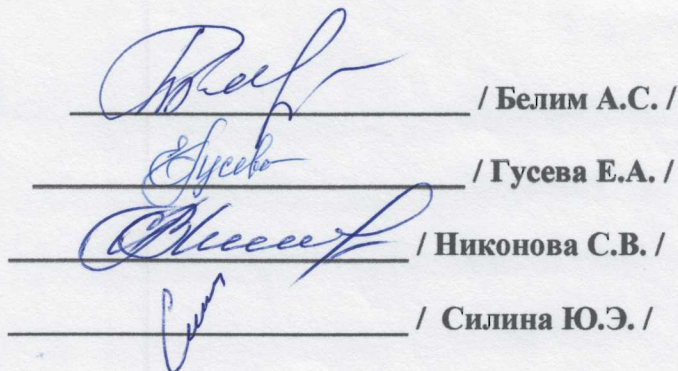 / Белим А.С. /
ЕГусева / Гусева Е.А. /
/ Никонова С.В. /
/ Силина Ю.Э. /